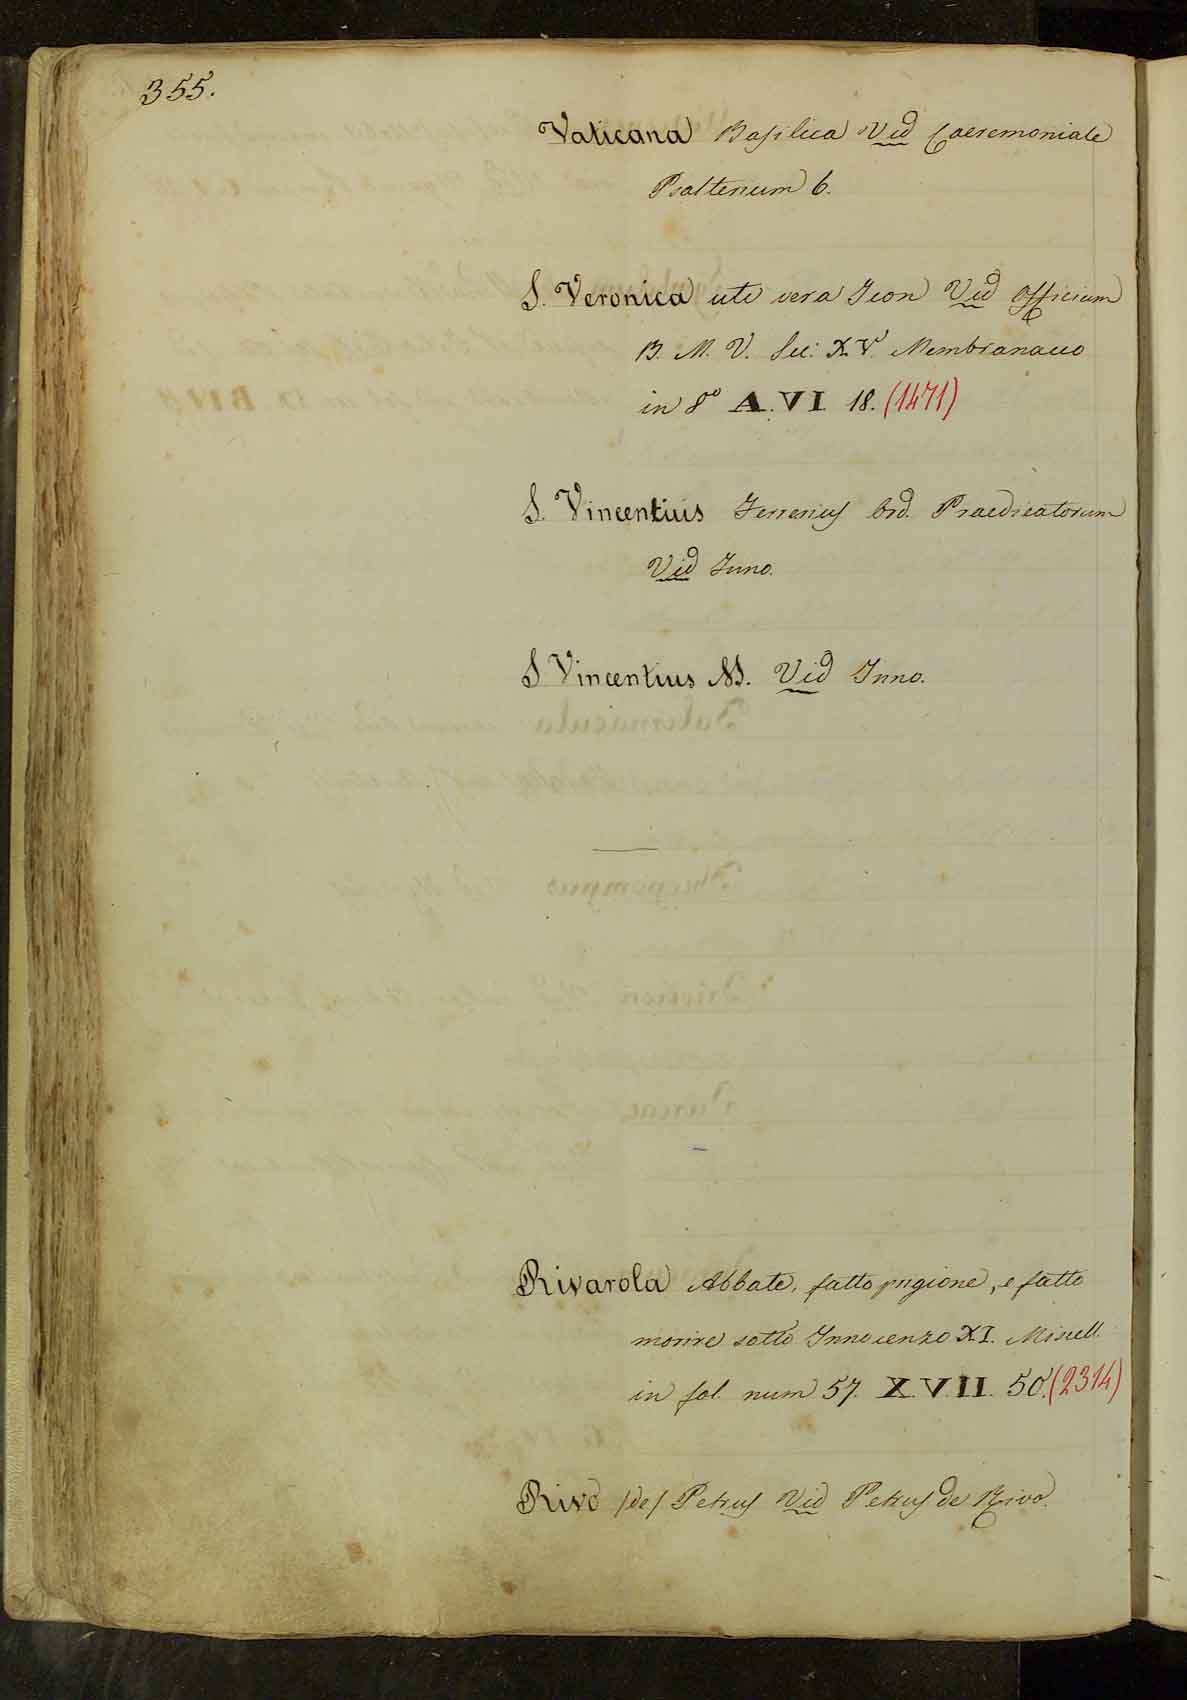 355.
Vaticana Basilica Vid Caeremoniale
Psalterium 6.
S. Veronica uti vera Icon Vid Officium
B. M. V. Sec. XV. Membranaceo
in 8º A. VI. 18. (1471)
S. Vincentius Ferrerius Ord. Praedicatorum
Vid Inno.
S Vincentius M. Vid Inno.
Rivarola Abbate, fatto prigione, e fatto
morire sotto Innocenzo XI. Miscell.
in fol. num 57. X. VII. 50. (2314)
Rivo /de/ Petrus Vid Petrus de Rivo.